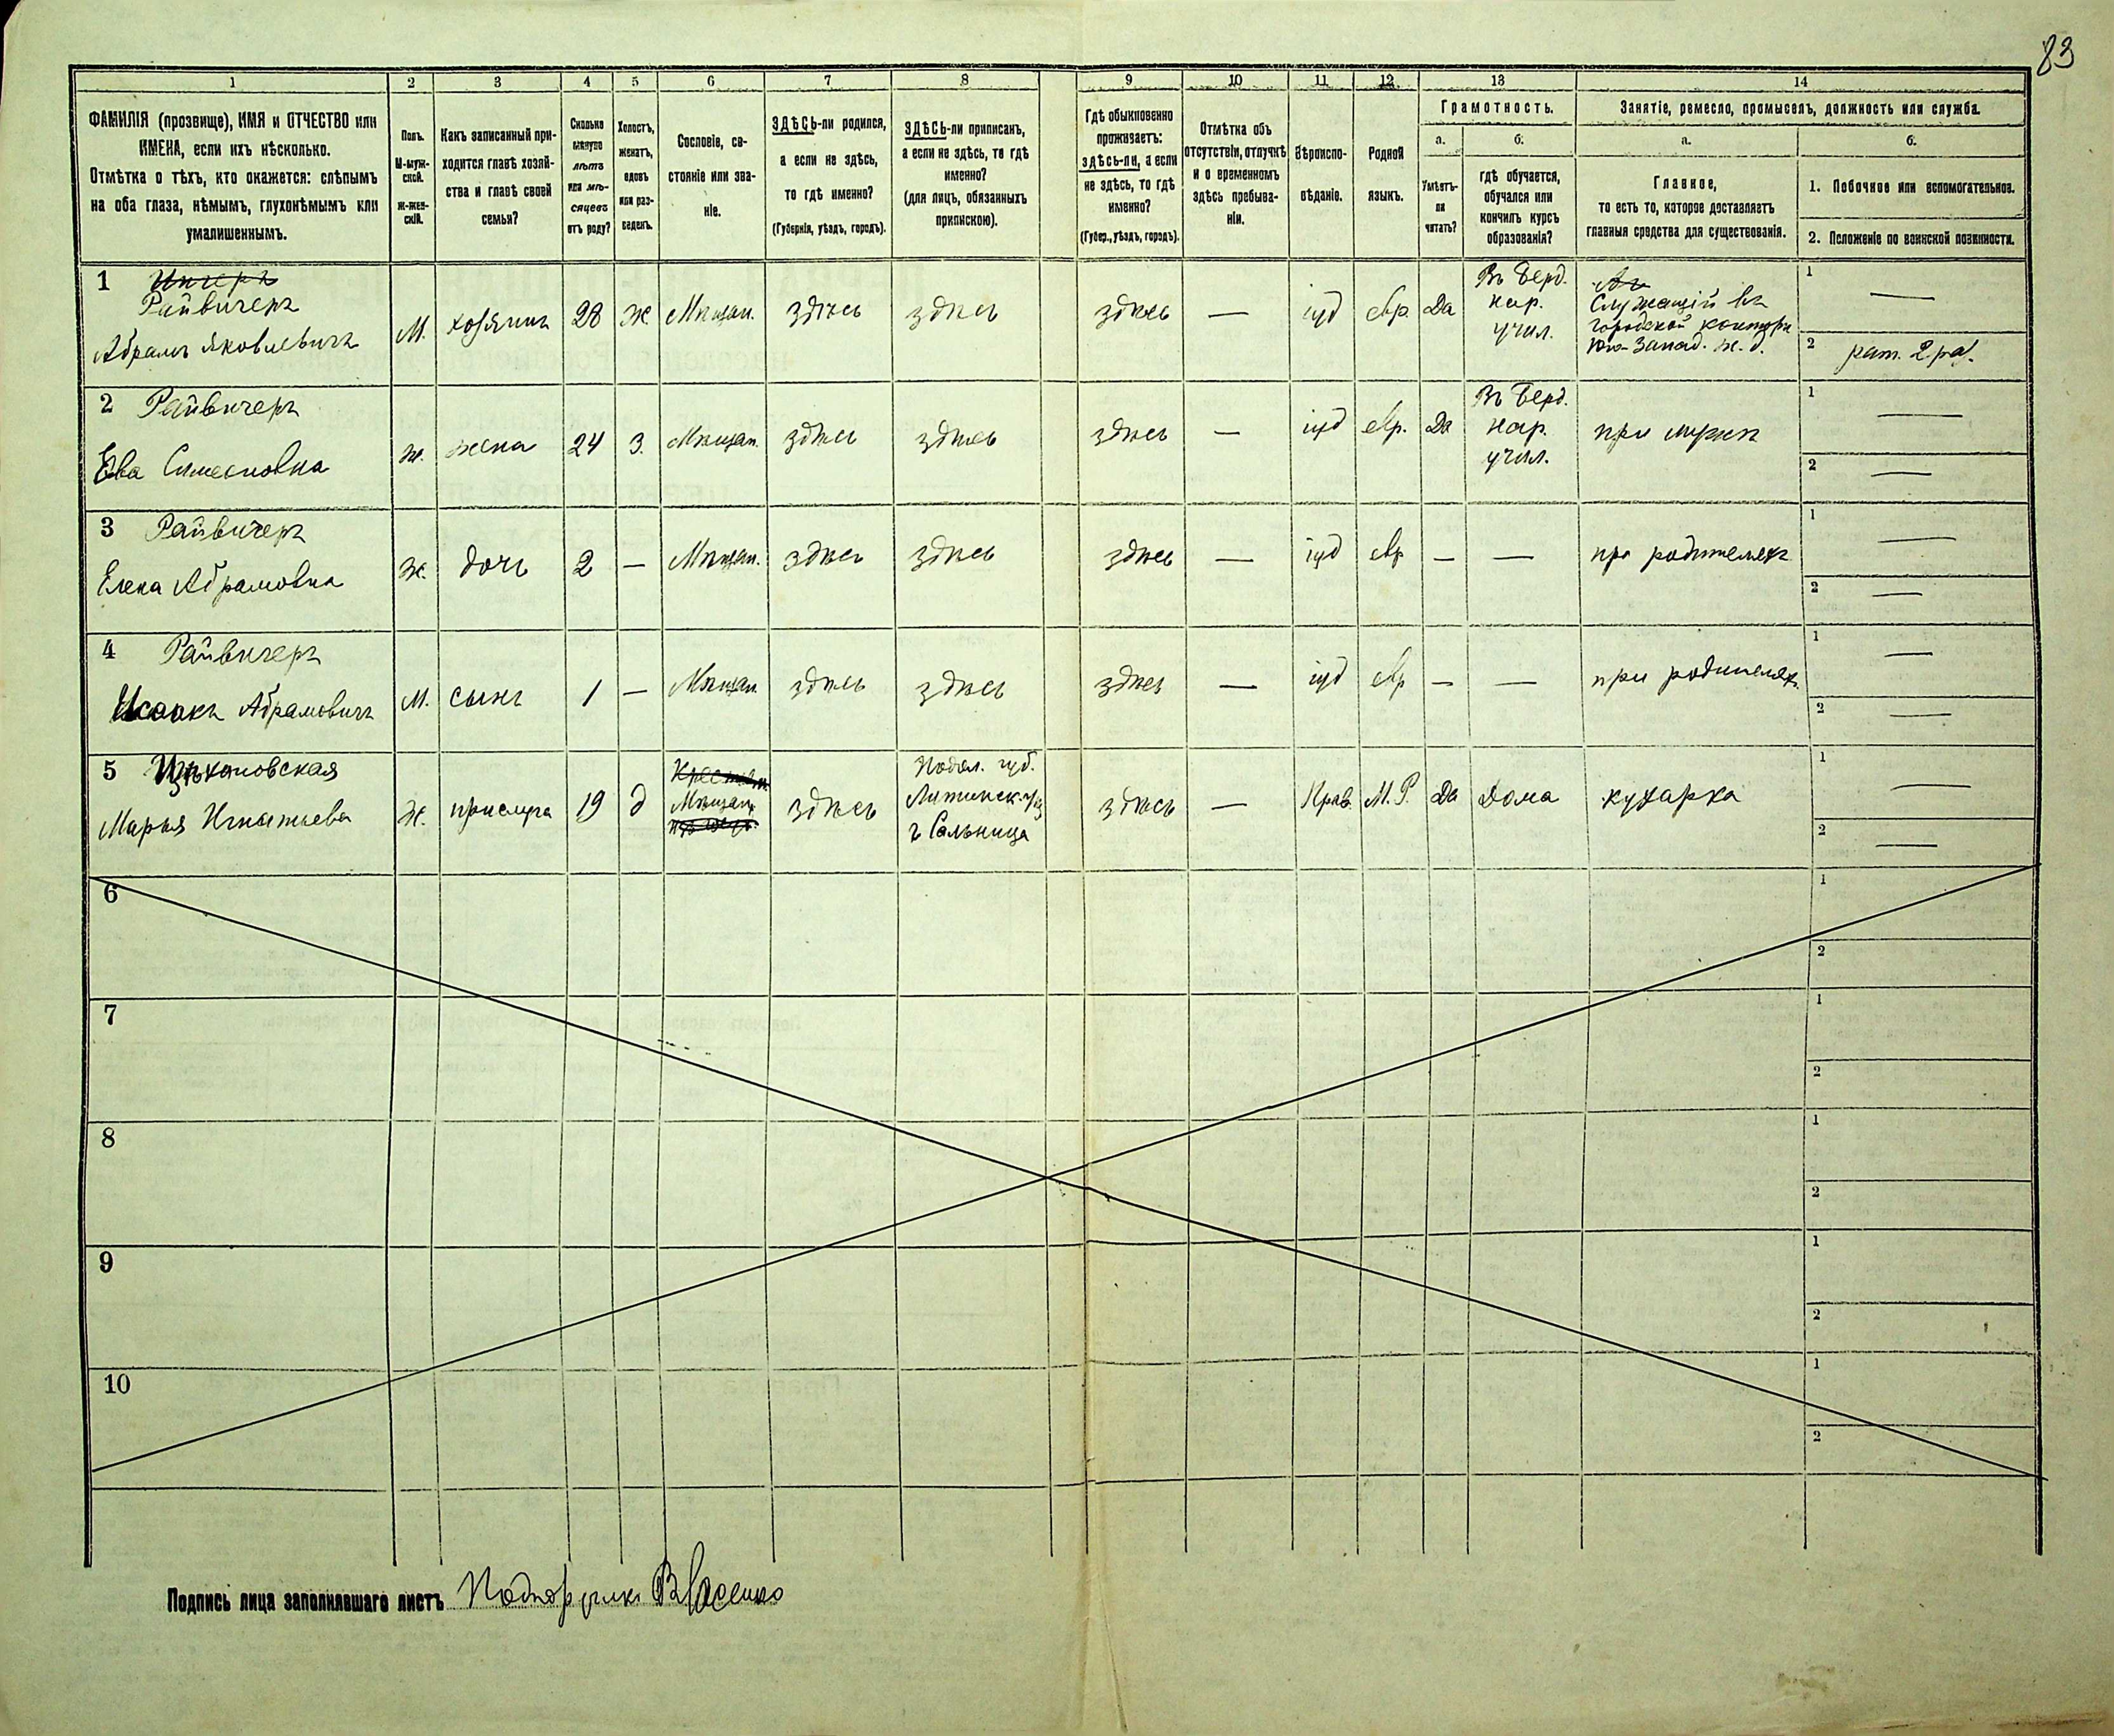 83
1 2 3 4 5 6 7 8 9 10 11 12 13 14
ФАМИЛІЯ (прозвище), ИМЯ и ОТЧЕСТВО или
ИМЕНА, если ихъ нѣсколько.
Отмѣтка о тѣхъ, кто окажется: слѣпымъ
на оба глаза, нѣмымъ, глухонѣмымъ или
умалишеннымъ.
Полъ.
М-муж-
ской.
Ж-жен-
скій.
Какъ записанный при-
ходится главѣ хозяй-
ства и главѣ своей
семьи?
Сколько
минуло
лѣтъ
или мѣ-
сяцевъ
отъ роду?
Холостъ,
женатъ,
вдовъ
или раз-
веденъ.
Сословіе, со-
стояніе или зва-
ніе.
ЗДѢСЬ-ли родился,
а если не здѣсь,
то гдѣ именно?
(Губернія, уѣздъ, городъ).
ЗДѢСЬ-ли приписанъ,
а если не здѣсь, то гдѣ
именно?
(для лицъ, обязанныхъ
припискою).
Гдѣ обыкновенно
проживаетъ:
здѣсь-ли, а если
не здѣсь, то гдѣ
именно?
(Губер., уѣздъ, городъ).
Отмѣтка объ
отсутствіи, отлучкѣ
и о временномъ
здѣсь пребыва-
ніи.
Вѣроиспо-
вѣданіе.
Родной
языкъ.
Грамотность.
а.
Умѣетъ-
ли
читать?
б.
гдѣ обучается,
обучался или
кончилъ курсъ
образованія?
Занятіе, ремесло, промыселъ, должность или служба.
а.
Главное,
то есть то, которое доставляетъ
главныя средства для существованія.
б.
1. Побочное или вспомогательное.
2. Положеніе по воинской повинности.
1
Райвичеръ
Абрамъ Яковлевичъ
М. хозяинъ 28 ж. Мѣщан. здѣсь здѣсь здѣсь — іуд евр. Да
Въ Берд.
нар.
учил.
Служащій въ
городской конторѣ
Юго-Запад. ж. д.
1 —
2 рат. 2 раз.
2 Райвичеръ
Ева Симеоновна
ж. жена 24 з. Мѣщан. здѣсь здѣсь здѣсь — іуд евр. Да
Въ Берд.
нар.
учил.
при мужѣ
1 —
2 —
3 Райвичеръ
Елена Абрамовна
ж. дочь 2 — Мѣщан. здѣсь здѣсь здѣсь — іуд евр — — при родителяхъ
1 —
2 —
4 Райвичеръ
Исаакъ Абрамовичъ
М. сынъ 1 — Мѣщан. здѣсь здѣсь здѣсь — іуд евр — — при родителях.
1 —
2 —
5
Марья Игнатьева
ж. прислуга 19 д
Мѣщан.
здѣсь
Подол. губ.
Литинск. уѣз
г Сальница
здѣсь — Прав. М. Р. Да Дома кухарка
1 —
2 —
6
1
2
7
1
2
8
1
2
9
1
2
10
1
2
Подпись лица заполнявшаго листъ